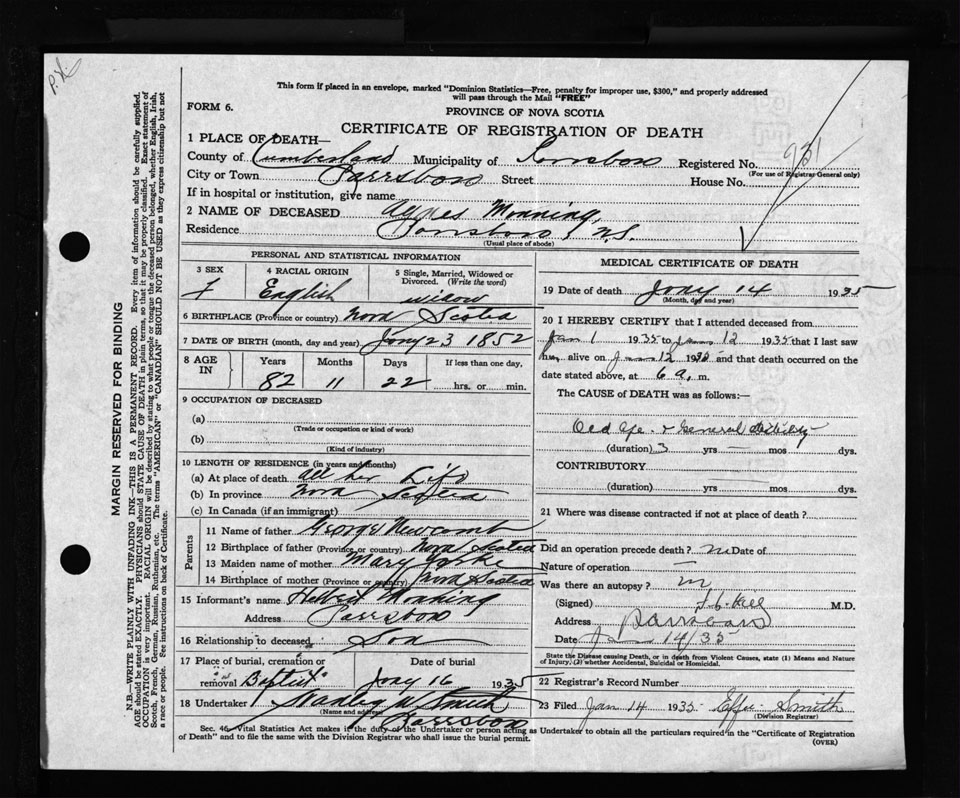 This form if placed in an envelope, marked "Dominion Statistics—Free, penalty for improper use, $300," and properly addressed
will pass through the Mail "FREE"
FORM 6.
PROVINCE OF NOVA SCOTIA
CERTIFICATE OF REGISTRATION OF DEATH
1 PLACE OF DEATH—
County of Cumberland Municipality of Parrsboro Registered No. 931
(For use of Registrar General only)
City or Town Parrsboro Street House No.
If in hospital or institution, give name
2 NAME OF DECEASED Agnes Monning
Residence Parrsboro N.S.
(Usual place of abode)
PERSONAL AND STATISTICAL INFORMATION
3 SEX F
4 RACIAL ORIGIN English
5 Single, Married, Widowed or Divorced. (Write the word) widow
6 BIRTHPLACE (Province or country) Nova Scotia
7 DATE OF BIRTH (month, day and year) Jany 23 1852
8 AGE IN Years 82 Months 11 Days 22 If less than one day, hrs. or min.
9 OCCUPATION OF DECEASED
(a)
(Trade or occupation or kind of work)
(b)
(Kind of industry)
10 LENGTH OF RESIDENCE (in years and months)
(a) At place of death all her Life
(b) In province Nova Scotia
(c) In Canada (if an immigrant)
Parents
11 Name of father George Newcomb
12 Birthplace of father (Province or country) Nova Scotia
13 Maiden name of mother Mary
14 Birthplace of mother (Province or country) Nova Scotia
15 Informant's name Monning
Address Parrsboro
16 Relationship to deceased Son
17 Place of burial, cremation or removal Baptist Date of burial Jany 16 1935
18 Undertaker Smith
(Name and address)
Parrsboro
MEDICAL CERTIFICATE OF DEATH
19 Date of death Jany 14 1935
(Month, day and year)
20 I HEREBY CERTIFY that I attended deceased from
Jan 1 1935 to Jan 12 1935 that I last saw
her alive on Jan 12 1935 and that death occurred on
date stated above, at 6 a. m.
The CAUSE of DEATH was as follows:
Old Age & General debility
(duration) 3 yrs — mos dys.
CONTRIBUTORY
(duration) yrs mos dys.
21 Where was disease contracted if not at place of death?
Did an operation precede death? no Date of
Nature of operation —
Was there an autopsy? no
(Signed) M.D.
Address Parrsboro
Date Jan 14/35
State the Disease causing Death, or in death from Violent Causes, state (1) Means and Nature of Injury, (2) whether Accidental, Suicidal or Homicidal.
22 Registrar's Record Number
23 Filed Jan 14 1935 Effie Smith
(Division Registrar)
Sec. 46 Vital Statistics Act makes it the duty of the Undertaker or person acting as Undertaker to obtain all the particulars required in the "Certificate of Registration
of Death" and to file the same with the Division Registrar who shall issue the burial permit.
(OVER)
MARGIN RESERVED FOR BINDING
N.B.—WRITE PLAINLY WITH UNFADING INK—THIS IS A PERMANENT RECORD. Every item of information should be carefully supplied.
AGE should be stated EXACTLY. PHYSICIANS should STATE CAUSE OF DEATH in plain terms, so that it may be properly classified. Exact statement of
OCCUPATION is very important. RACIAL ORIGIN will be described by stating to what people or tongue the deceased person belonged, whether English, Irish,
Scotch, French, German, Russian, Ruthenian, etc. The terms "AMERICAN" or "CANADIAN" SHOULD NOT BE USED as they express citizenship but not
a race or people. See instructions on back of Certificate.